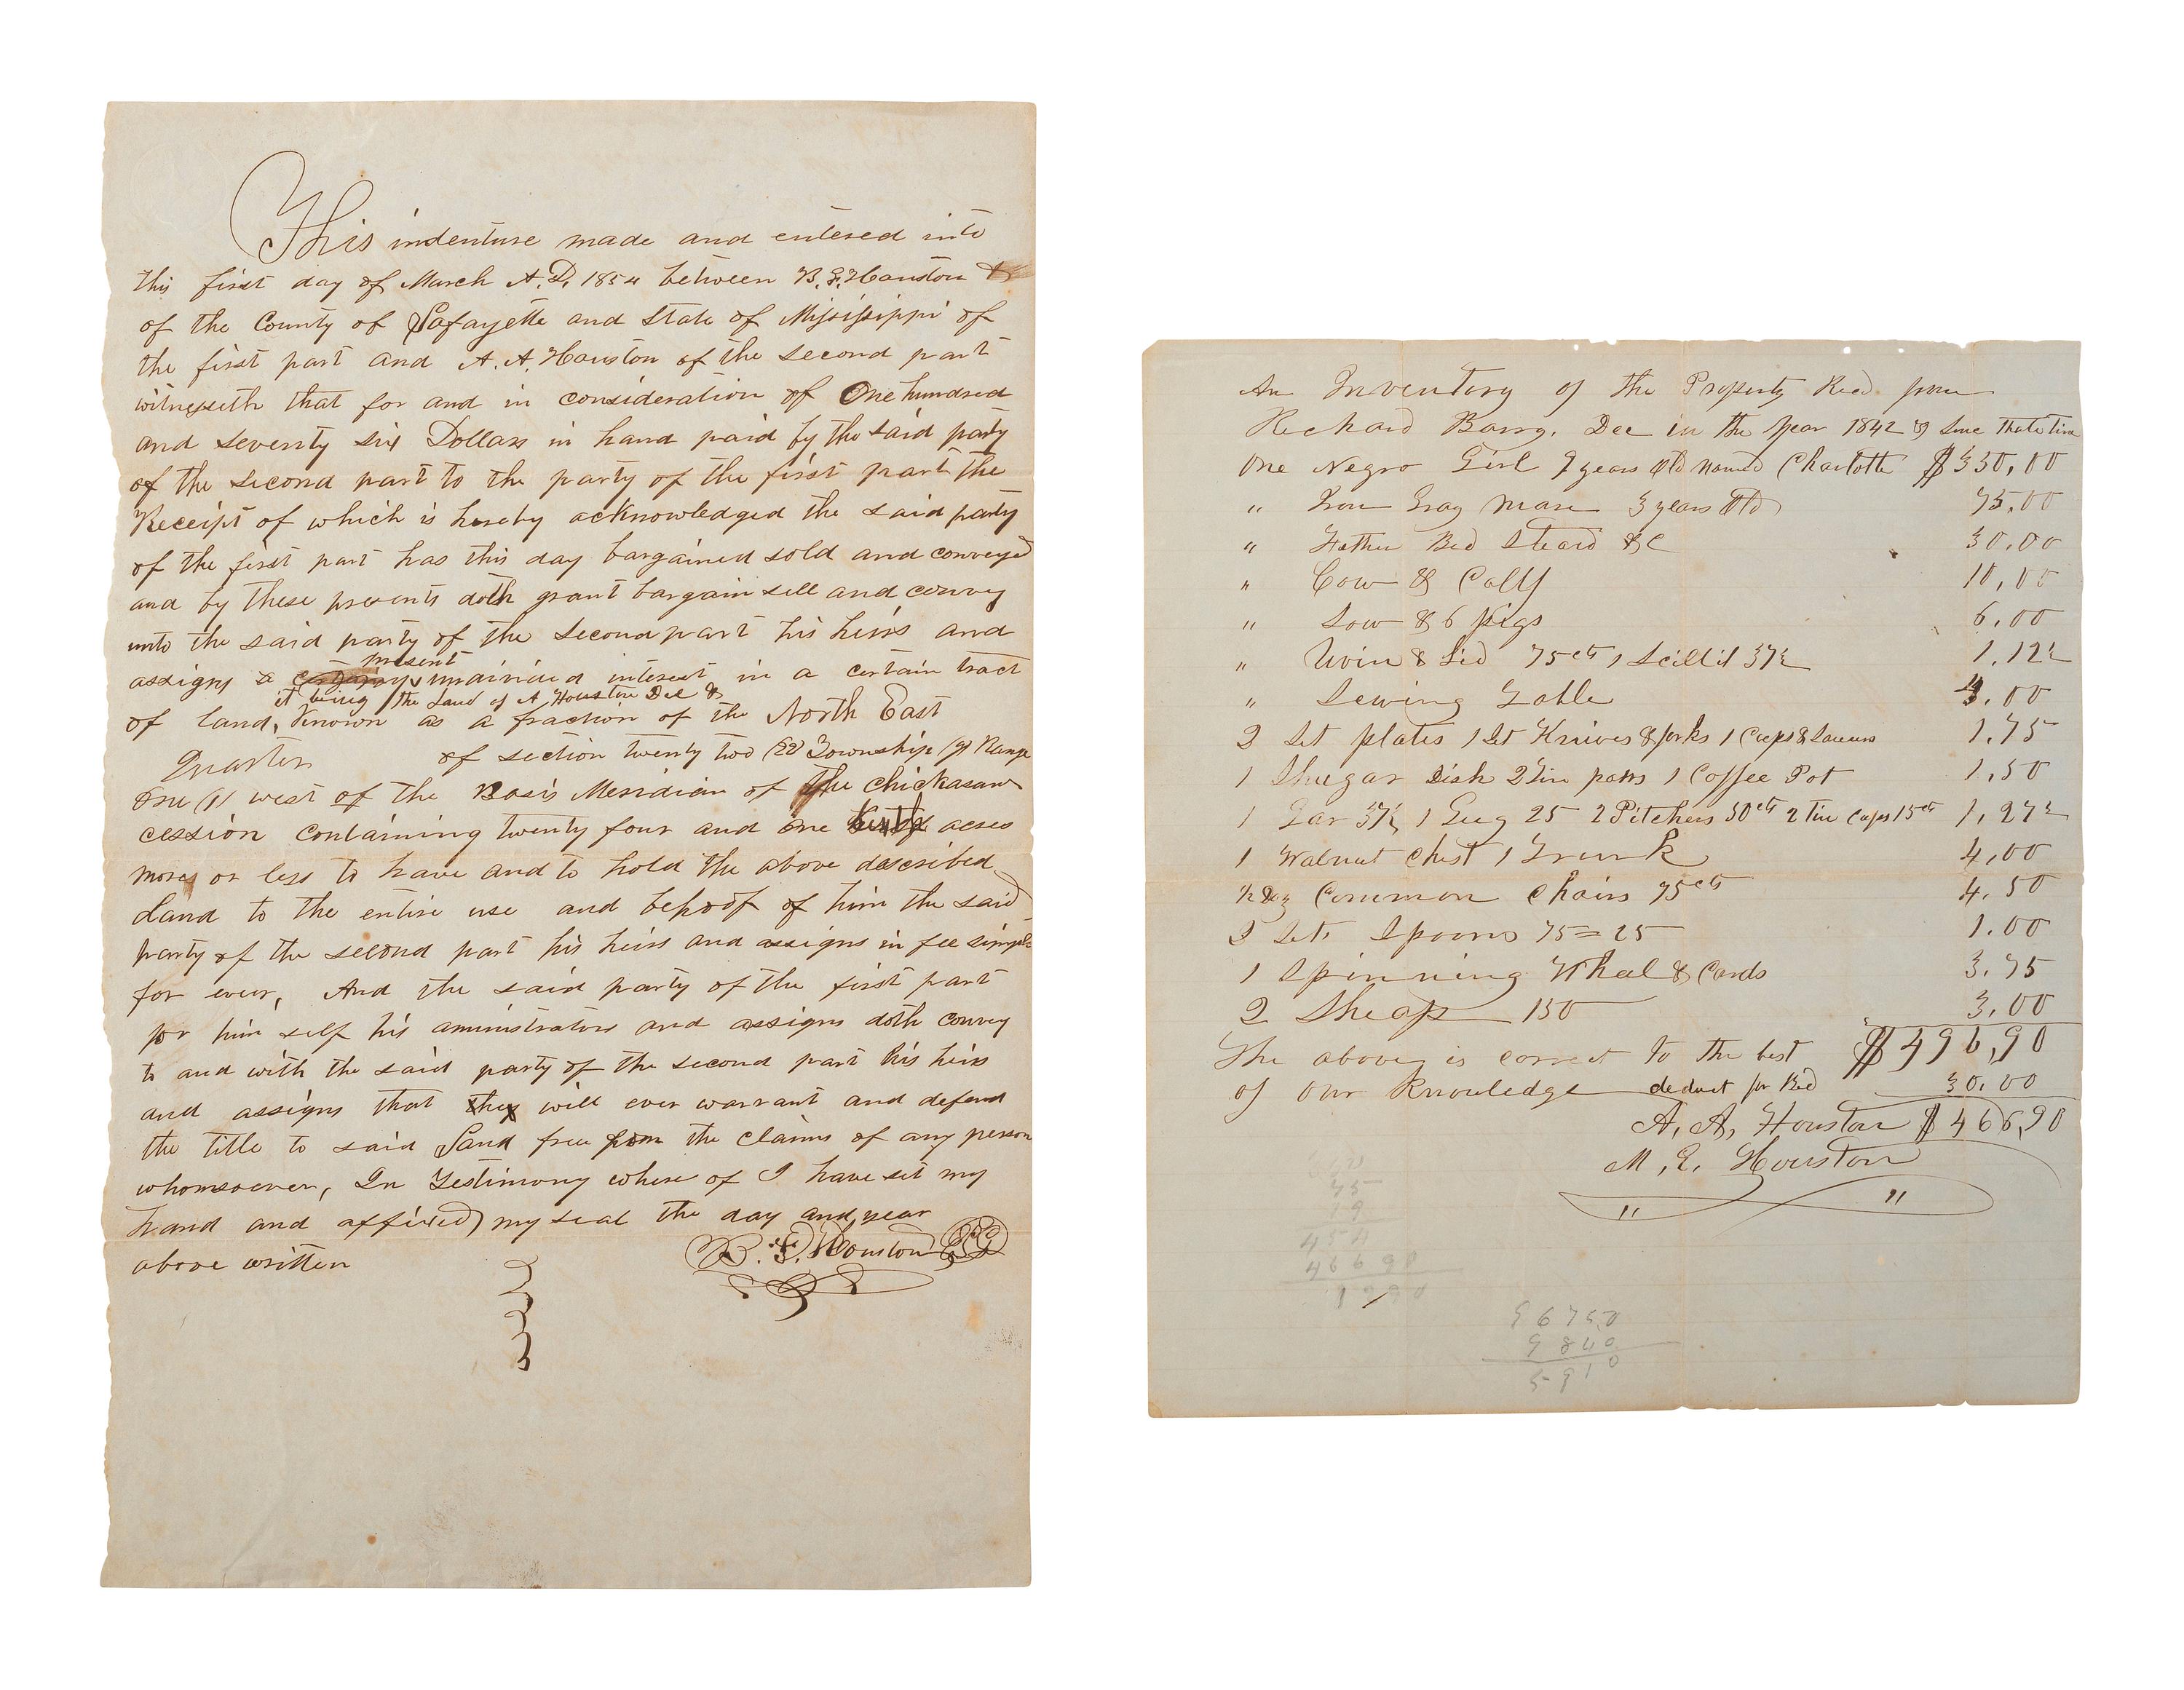 This indenture made and entered into
this first day of March A.D. 1854 between B. F. Houston
of the County of Lafayette and State of Mississippi of
the first part and A. A. Houston of the second part
witnesseth that for and in consideration of One hundred
and seventy six Dollars in hand paid by the said party
of the second part to the party of the first part the
Receipt of which is hereby acknowledged the said party
of the first part has this day bargained sold and conveyed
and by these presents doth grant bargain sell and convey
unto the said party of the second part his heirs and
present
assigns a undivided interest in a certain tract
it being the Land of A Houston Dec &
of land, Known as a fraction of the North East
Quarter of section twenty two (22 Township (9) Range
One (1) west of the Basis Meridian of the Chickasaw
cession containing twenty four and one acres
more or less to have and to hold the above described
Land to the entire use and behoof of him the said
party of the second part his heirs and assigns in fee simple
for ever, And the said party of the first part
for him self his aministrators and assigns doth convey
to and with the said party of the second part his heirs
and assigns that they will ever warrant and defend
the title to said Land free from the claims of any person
whomsoever, In Testimony where of I have set my
hand and affixed my seal the day and year
above written B. F. Houston
An Inventory of the Property Recd from
Richard Barry. Dec in the year 1842 & since that time
One Negro Girl 9 years Old named Charlotte $330,00
" Iron Gray Mare 3 years Old 75,00
" Fether Bed Stead &C 30.00
" Cow & Calf 10,00
" Sow & 6 pigs 6,00
" Ovin & Lid 75cts 1 Scillit 37½ 1,12½
" Sewing Table 3,00
2 Set plates 1 Set Knives & forks 1 Cups & Saucers 1,75
1 Shugar Dish 2 Tin pans 1 Coffee Pot 1,50
1 Jar 37½ 1 Gug 25 2 Pitchers 50cts 2 Tin Cups 15cts 1,27½
1 Walnut chest 1 Trunk 4,00
½ Doz Common Chairs 75cts 4,50
2 Sets Spoons 75=25 1.00
1 Spinning Wheal & Cards 3,75
2 Sheap 150 3,00
The above is correct to the best $496,90
of our Knowledge deduct for Bed 30,00
A, A, Houston $466,90
M, E, Houston
" "
45
19
454
46690
96750
9840
5910